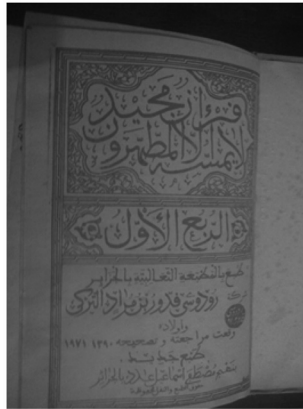 قرءان مجيد
لا يمسه الا المطهرون
الربع الأول
طبع بالمطبعة الثعالبية بالجزائر
رودوسي قدور بن مراد التركي
وأولاده
وتمت مراجعته وتصحيحه ١٣٩٠ ١٩٧١
طبع جديد
بالجزائر